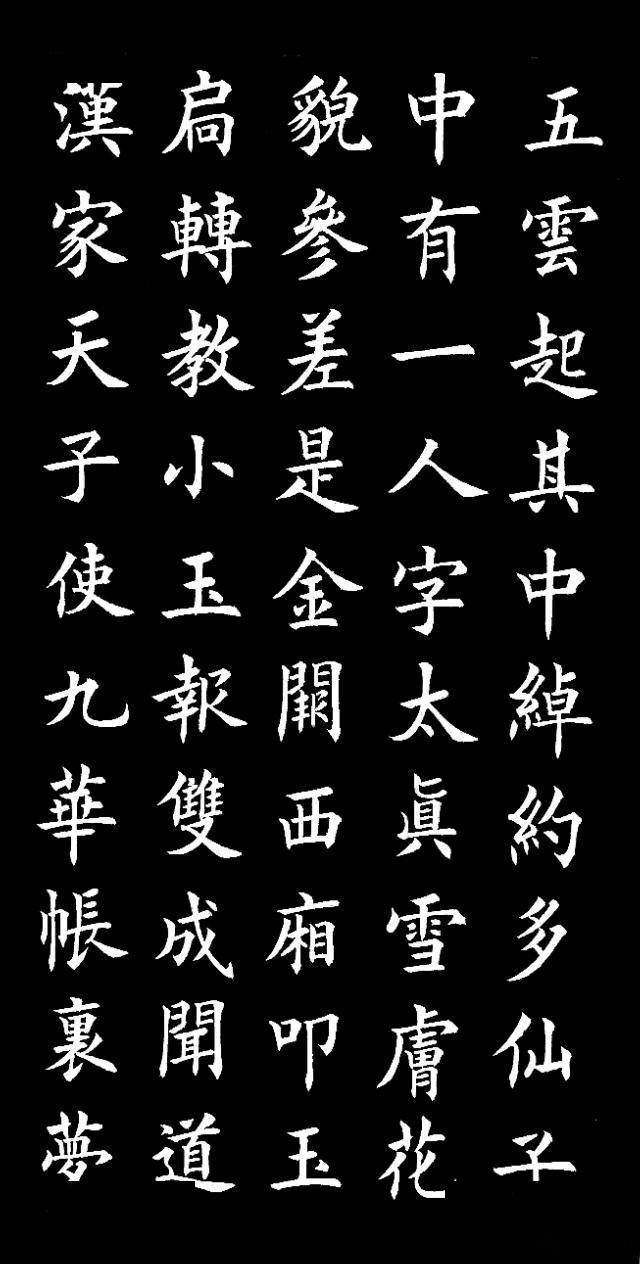 五雲起其中綽約多仙子
中有一人字太眞雪膚花
貌參差是金闕西廂叩玉
扃轉教小玉報雙成聞道
漢家天子使九華帳裏夢